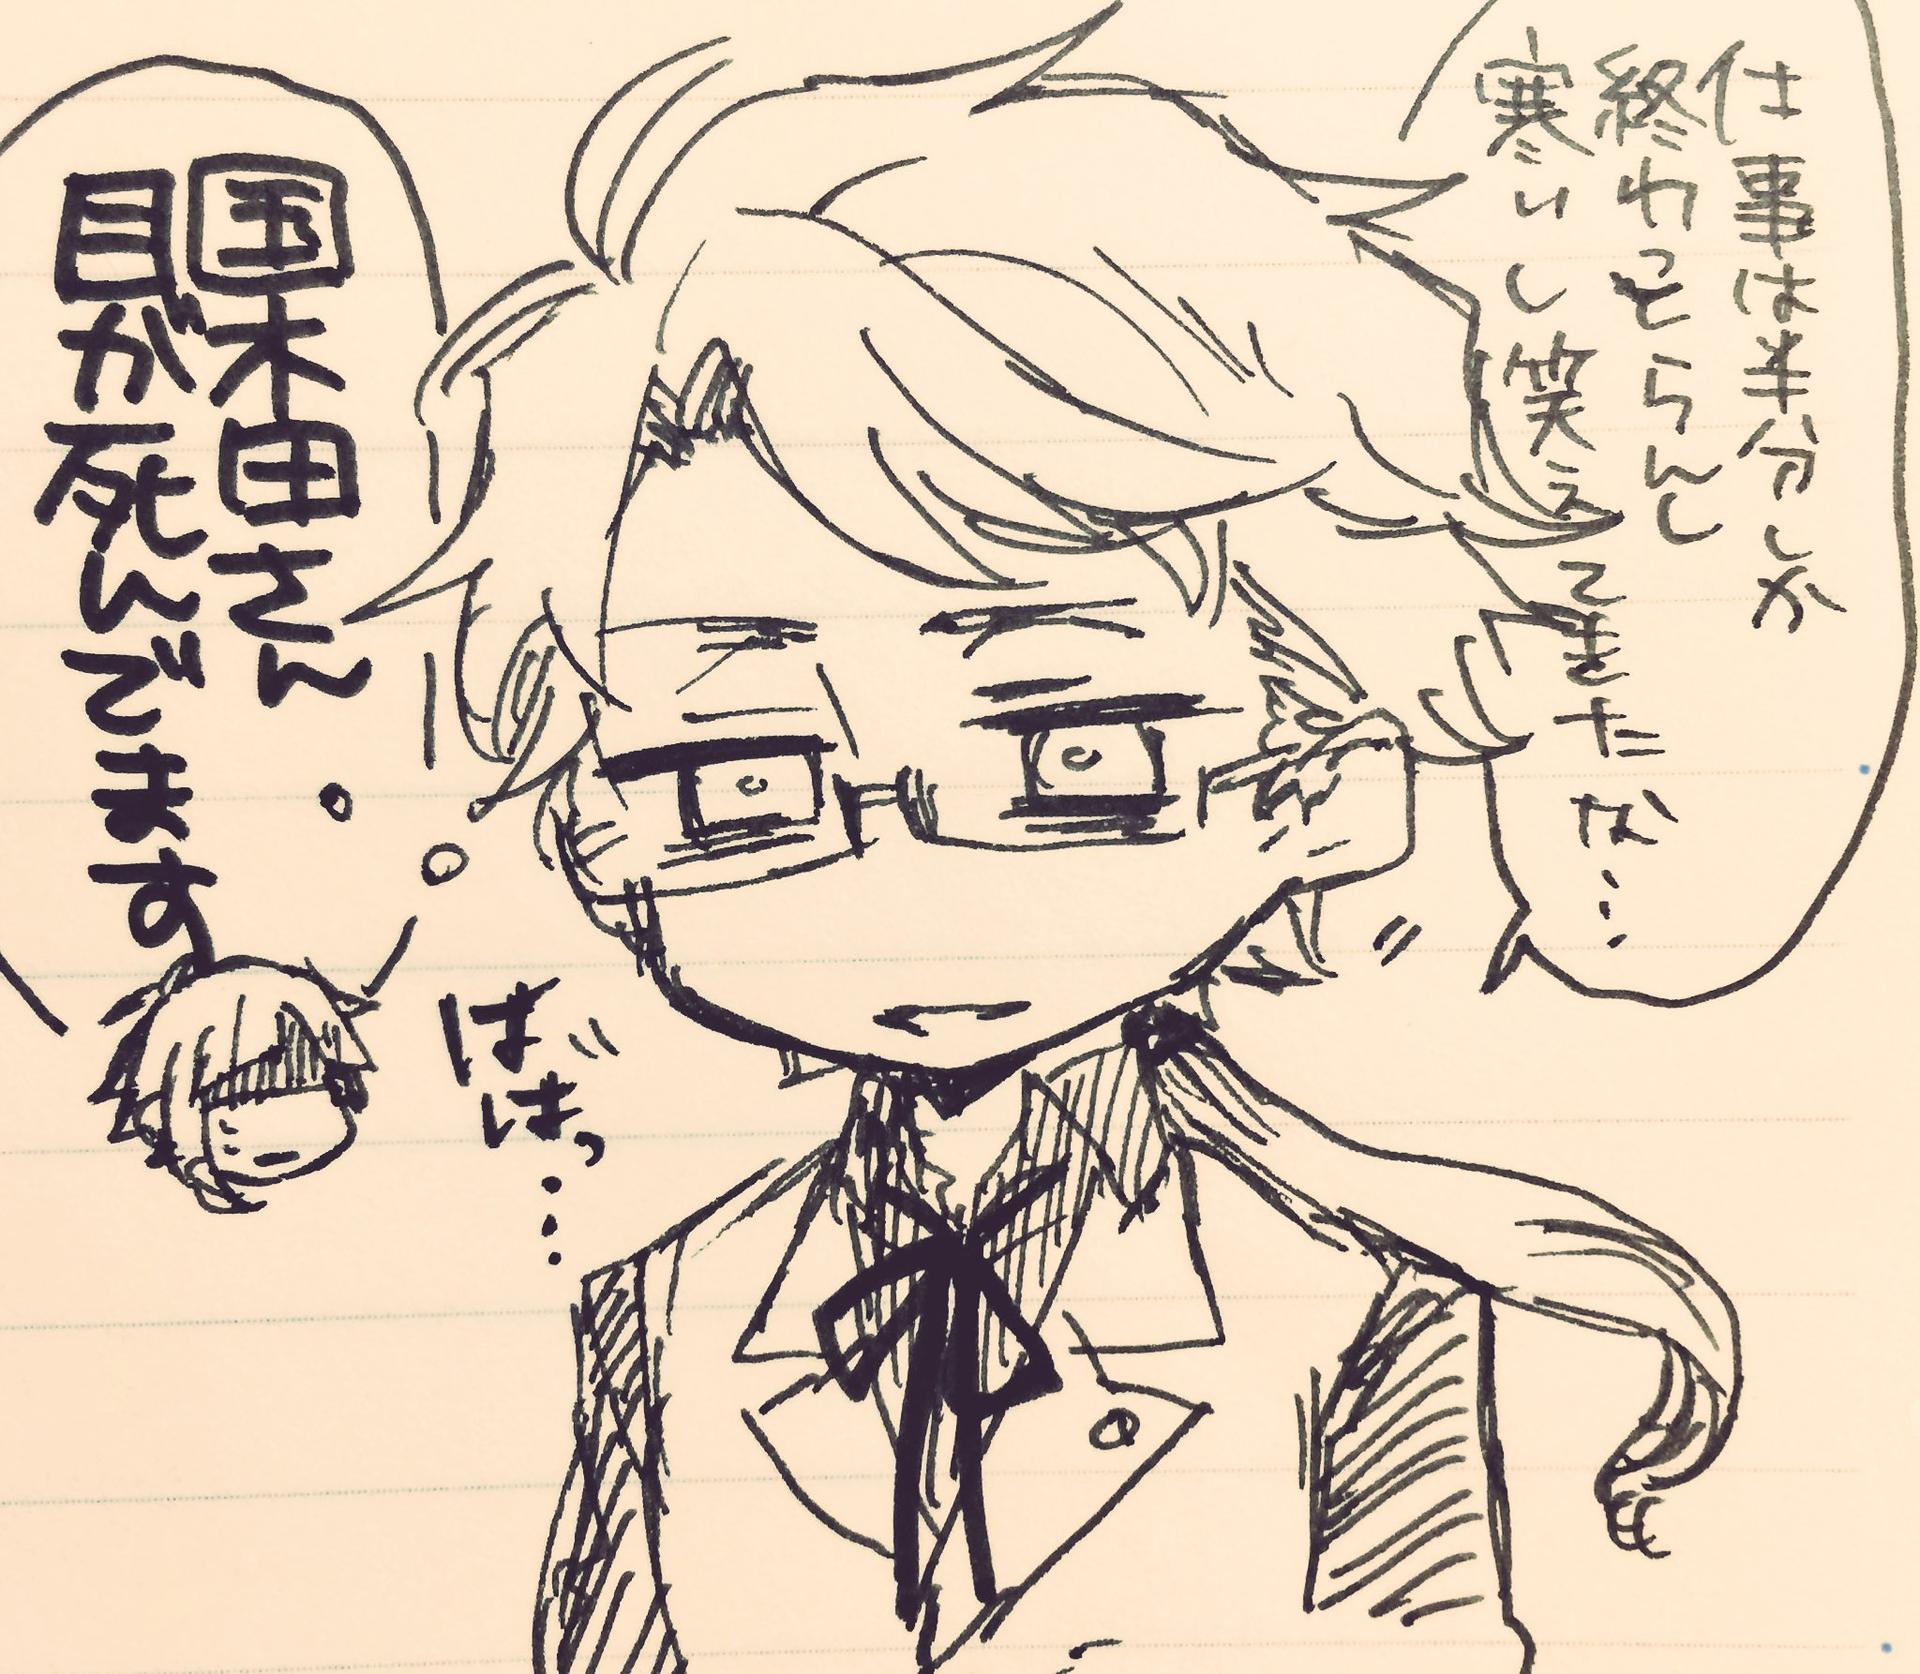 仕事は半分しか
終わっとらんし
寒いし笑えてきたな…
ばはっ…
国木田さん
目が死んでます